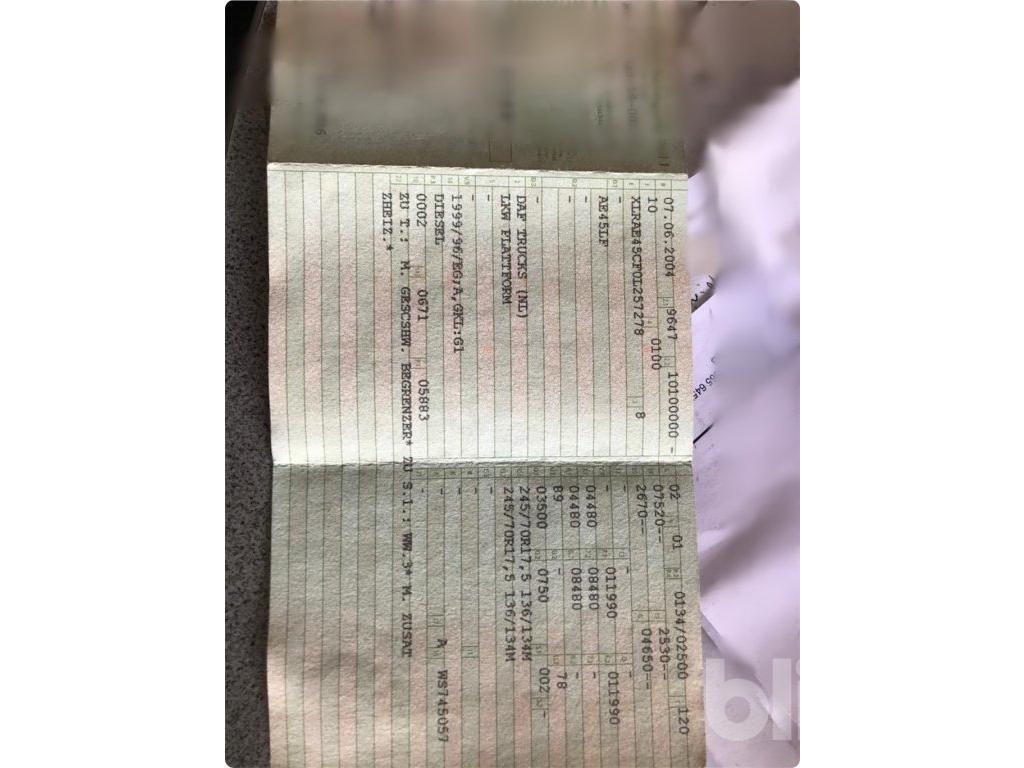 07.06.2004 9647 10100000 -
10 0100
XLRAE45CF0L257278 8
-
AE45LF
-
-
-
DAF TRUCKS (NL)
LKW PLATTFORM
-
-
1999/96/EG;A,GKL:G1
DIESEL
0002 0671 05883
02 01 0134/02500 120
07520-- 2530--
2670-- 04650--
- - -
- 011990 011990
04480 08480 -
04480 08480 -
89 - 78
03500 0750 002 -
245/70R17,5 136/134M
245/70R17,5 136/134M
-
-
- A WS745057
ZU T.: M. GESCSHW. BEGRENZER* ZU S.1.: WW.3* M. ZUSAT
ZHEIZ.*
bli